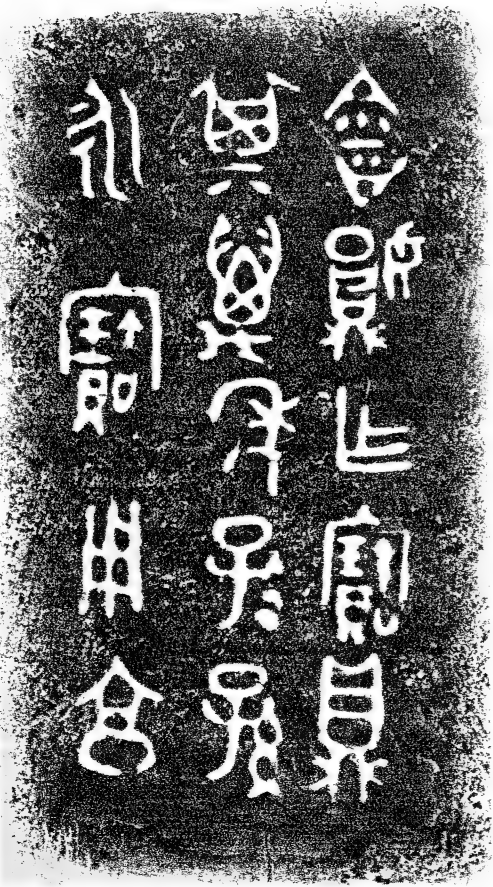 會㜏乍寶鼎
其萬年子=孫
永寶用享